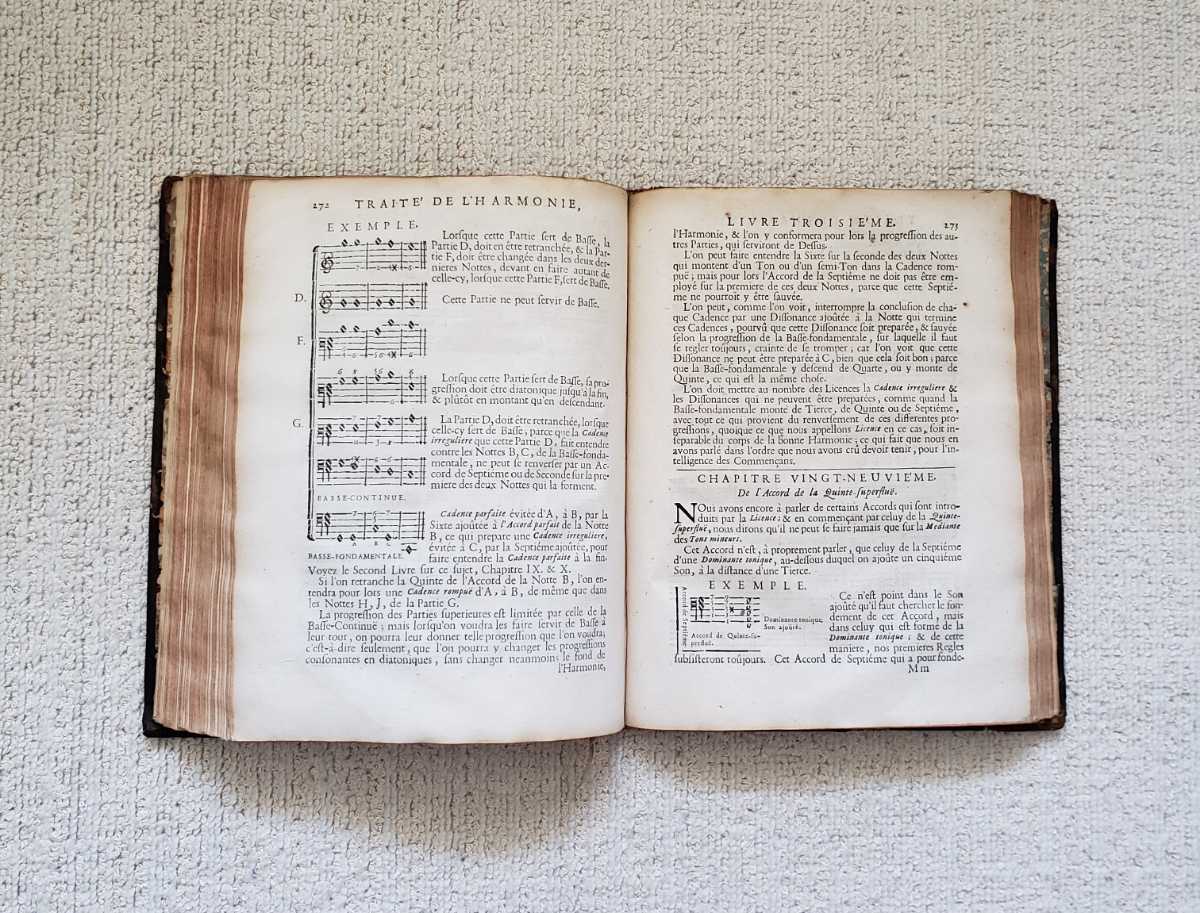 272 TRAITE' DE L'HARMONIE,
EXEMPLE.
Lorsque cette Partie sert de Basse, la
Partie D, doit être retranchée, & la Par-
tie F, doit être changée dans les deux der-
nieres Nottes, devant en faire autant de
celle-cy, lorsque cette Partie F, sert de Basse.
D.
Cette Partie ne peut servir de Basse.
F.
Lorsque cette Partie sert de Basse, sa pro-
gression doit être diatonique jusqu'à la fin,
& plûtôt en montant qu'en descendant.
G.
La Partie D, doit être retranchée, lorsque
celle-cy sert de Basse, parce que la Cadence
irreguliere que cette Partie D, fait entendre
contre les Nottes B, C, de la Basse-fonda-
mentale, ne peut se renverser par un Ac-
cord de Septiéme ou de Seconde sur la pre-
miere des deux Nottes qui la forment.
BASSE-CONTINUE.
Cadence parfaite évitée d'A, à B, par la
Sixte ajoûtée à l'Accord parfait de la Notte
B, ce qui prepare une Cadence irreguliere,
évitée à C, par la Septiéme ajoûtée, pour
faire entendre la Cadence parfaite à la fin.
A B C
BASSE-FONDAMENTALE.
Voyez le Second Livre sur ce sujet, Chapitre IX. & X.
Si l'on retranche la Quinte de l'Accord de la Notte B, l'on en-
tendra pour lors une Cadence rompuë d'A, à B, de même que dans
les Nottes H, J, de la Partie G.
La progression des Parties superieures est limitée par celle de la
Basse-Continuë; mais lorsqu'on voudra les faire servir de Basse à
leur tour, on pourra leur donner telle progression que l'on voudra;
c'est-à-dire seulement, que l'on pourra y changer les progressions
consonantes en diatoniques, sans changer neanmoins le fond de
l'Harmonie,
LIVRE TROISIE'ME. 273
l'Harmonie, & l'on y conformera pour lors la progression des au-
tres Parties, qui serviront de Dessus.
L'on peut faire entendre la Sixte sur la seconde des deux Nottes
qui montent d'un Ton ou d'un semi-Ton dans la Cadence rom-
puë; mais pour lors l'Accord de la Septiéme ne doit pas être em-
ployé sur la premiere de ces deux Nottes, parce que cette Septié-
me ne pourroit y être sauvée.
L'on peut, comme l'on voit, interrompre la conclusion de cha-
que Cadence par une Dissonance ajoûtée à la Notte qui termine
ces Cadences, pourvû que cette Dissonance soit preparée, & sauvée
selon la progression de la Basse-fondamentale, sur laquelle il faut
se regler toûjours, crainte de se tromper; car l'on voit que cette
Dissonance ne peut être preparée à C, bien que cela soit bon; parce
que la Basse-fondamentale y descend de Quarte, ou y monte de
Quinte, ce qui est la même chose.
L'on doit mettre au nombre des Licences la Cadence irreguliere &
les Dissonances qui ne peuvent être preparées, comme quand la
Basse-fondamentale monte de Tierce, de Quinte ou de Septiéme,
avec tout ce qui provient du renversement de ces differentes pro-
gressions, quoique ce que nous appellons Licence en ce cas, soit in-
separable du corps de la bonne Harmonie; ce qui fait que nous en
avons parlé dans l'ordre que nous avons crû devoir tenir, pour l'in-
telligence des Commençans.
CHAPITRE VINGT-NEUVIE'ME.
De l'Accord de la Quinte-superfluë.
NOus avons encore à parler de certains Accords qui sont intro-
duits par la Licence; & en commençant par celuy de la Quinte-
superfluë, nous dirons qu'il ne peut se faire jamais que sur la Mediante
des Tons mineurs.
Cet Accord n'est, à proprement parler, que celuy de la Septiéme
d'une Dominante tonique, au-dessous duquel on ajoûte un cinquiéme
Son, à la distance d'une Tierce.
EXEMPLE.
Accord de Septiéme
Dominante tonique,
Son ajoûté.
Accord de Quinte-su-
perfluë.
Ce n'est point dans le Son
ajoûté qu'il faut chercher le fon-
dement de cet Accord, mais
dans celuy qui est forme de la
Dominante tonique; & de cette
maniere, nos premieres Regles
subsisteront toûjours. Cet Accord de Septiéme qui a pour fonde-
Mm